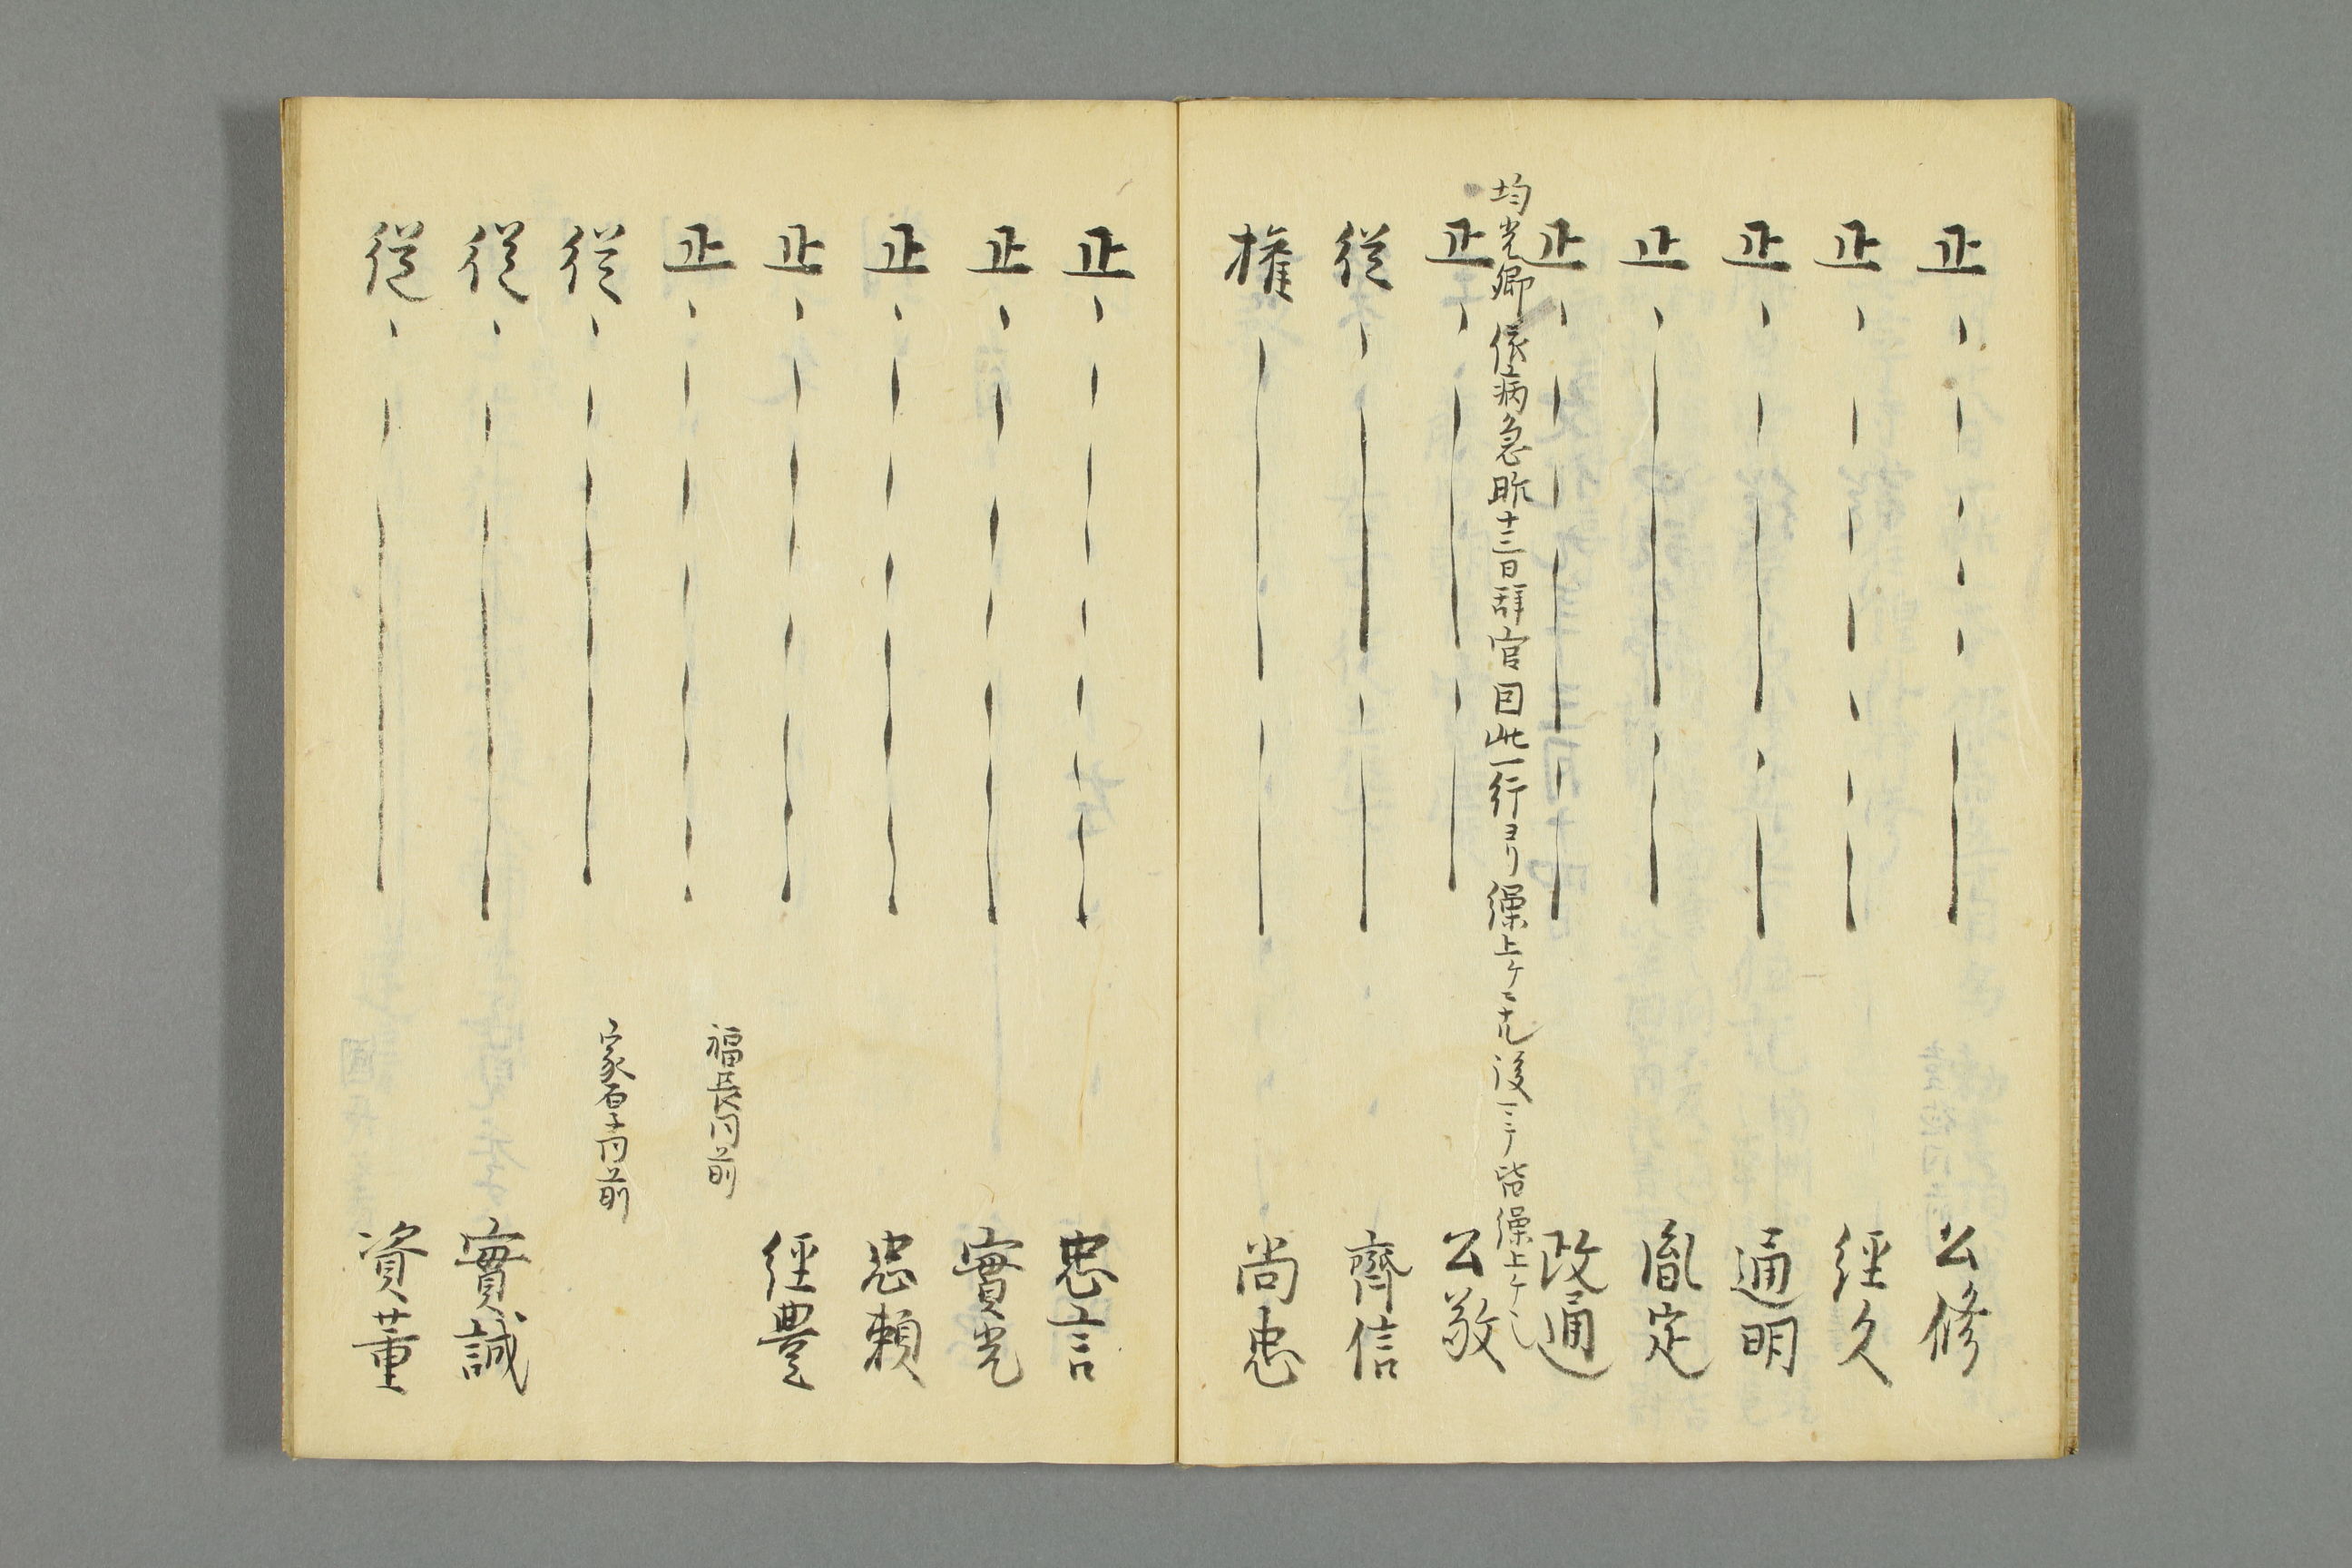 正 公修
正 經久
正 通明
正 胤定
正 政通
均光卿依病急昨十三日辞官因此一行ヨリ繰上ケニナル後ニテ皆繰上ケシ
正 公敬
従 齊信
権 尚忠
正 忠言
正 實光
正 忠頼
正 經豊
正 福長
従 家
従 實誠
従 資董